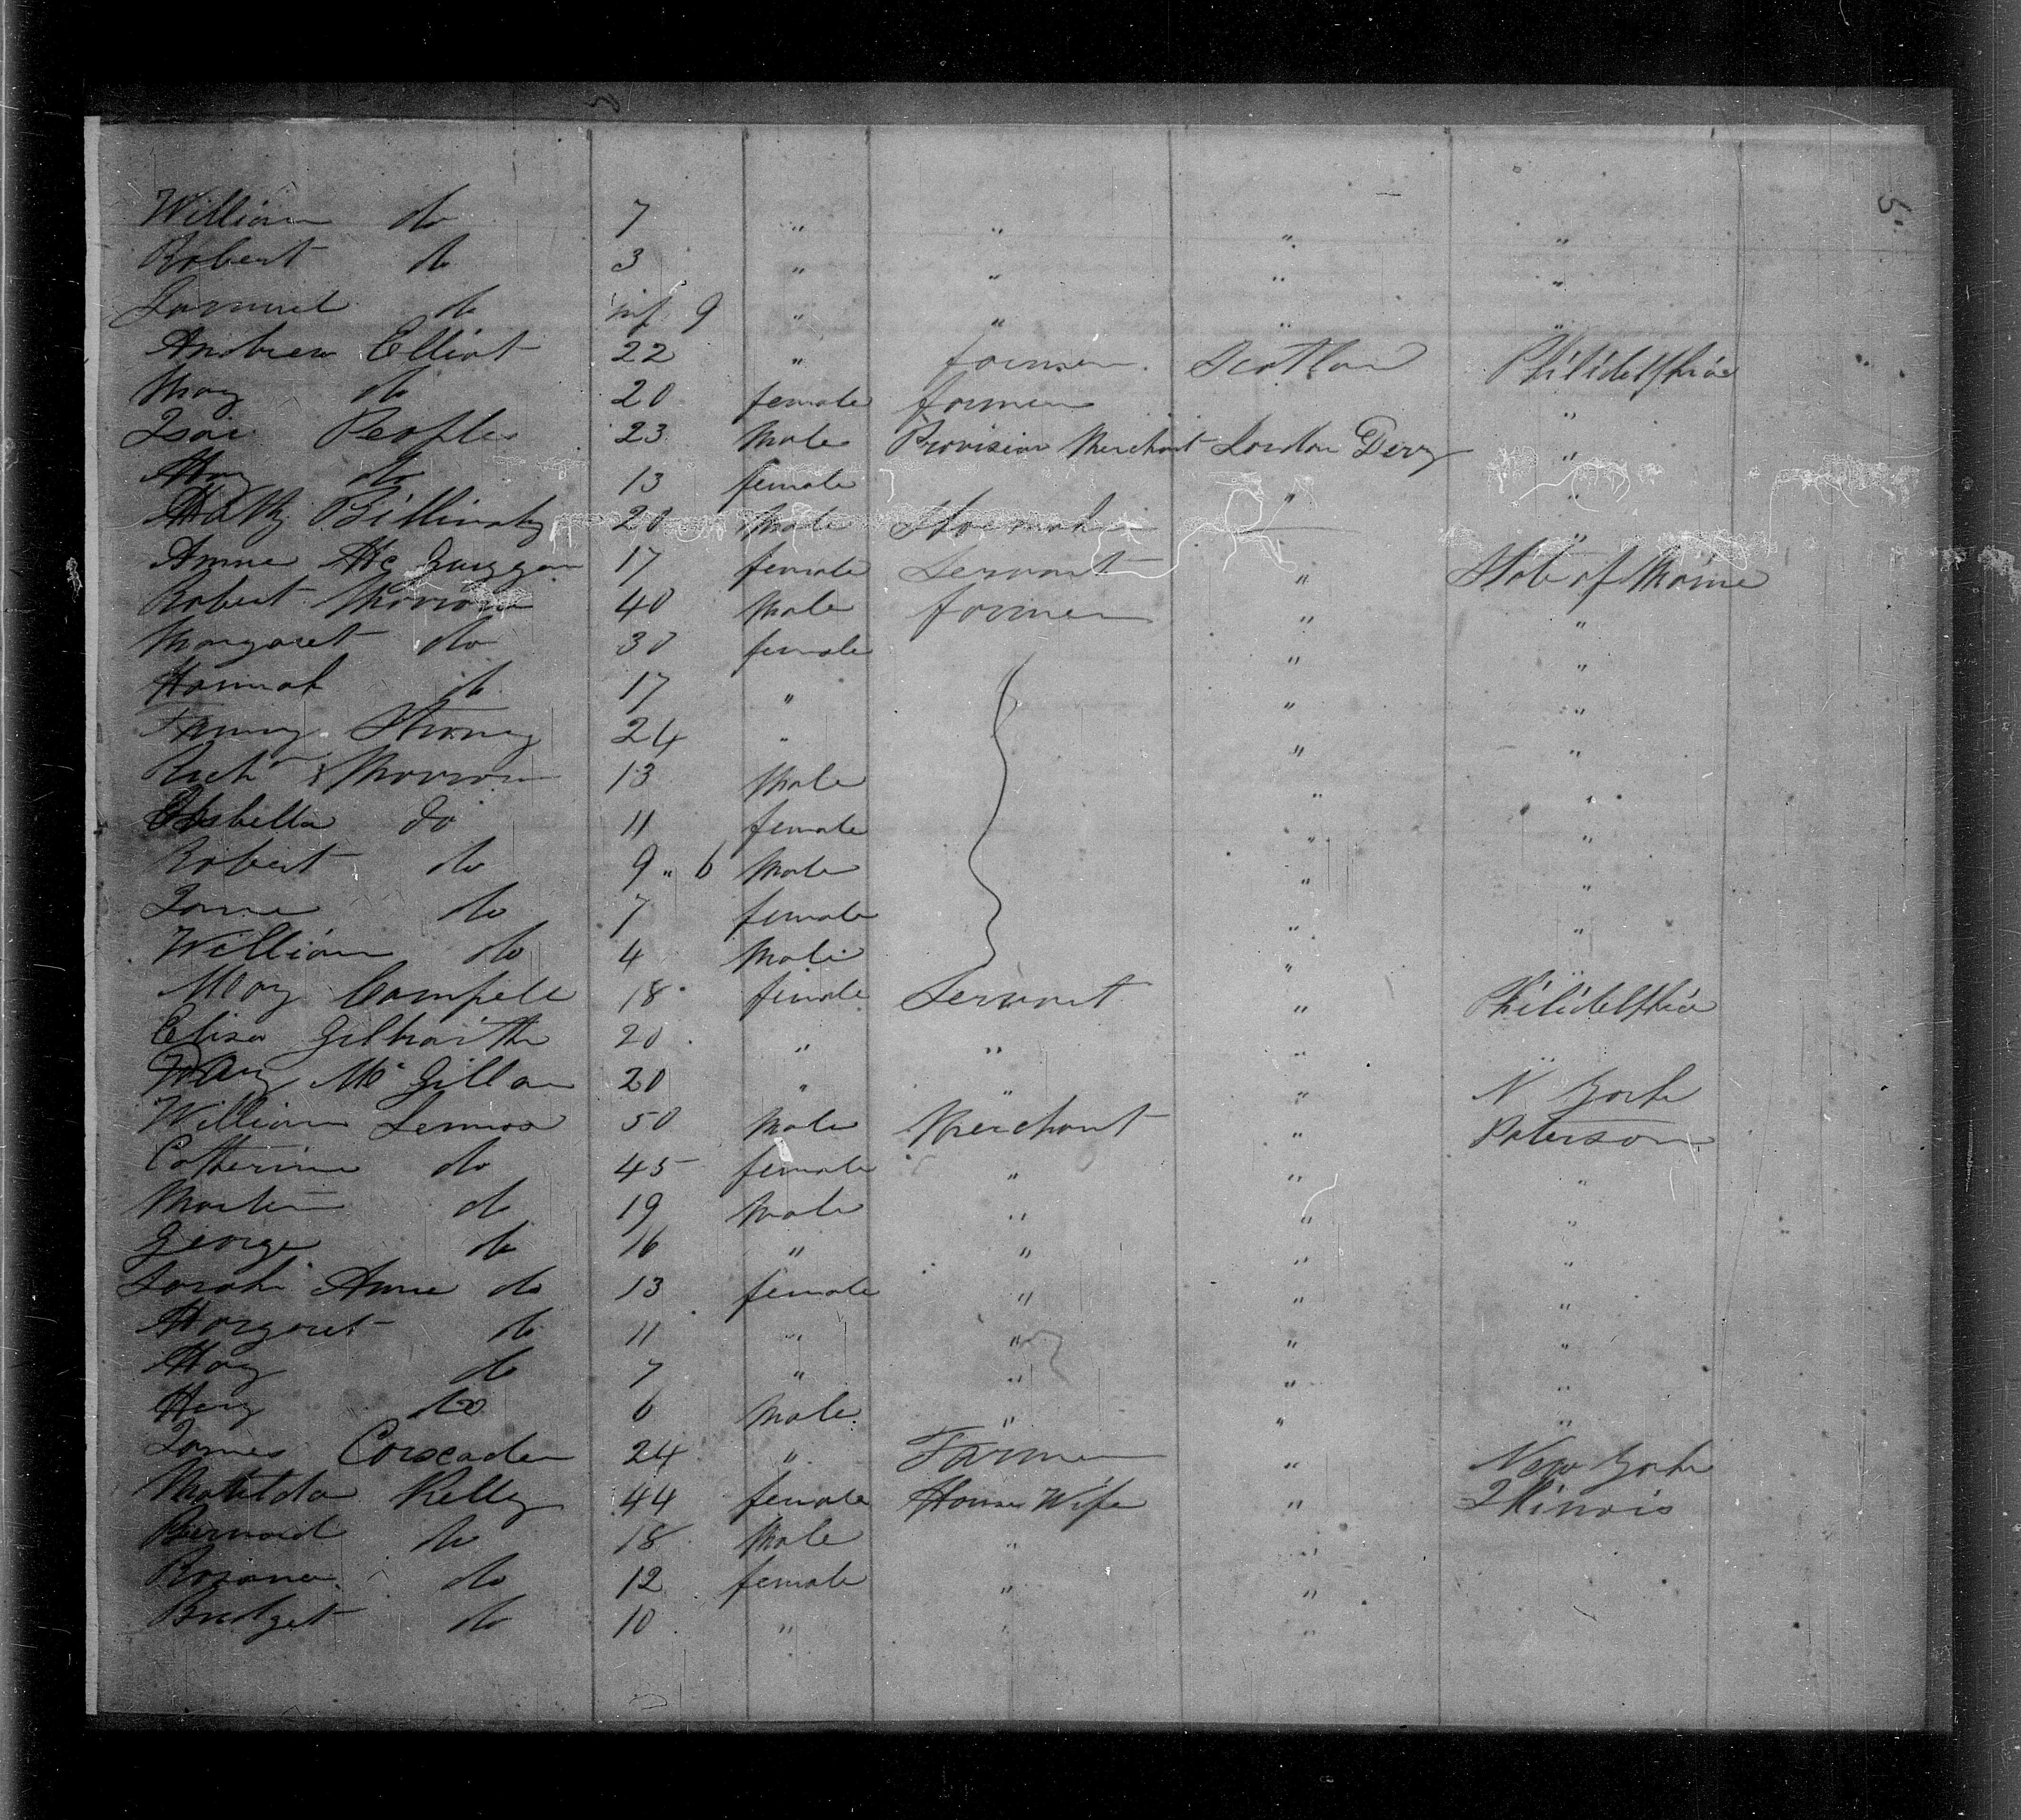 5.
William do 7 " " " "
Robert do 3 " " " "
Samuel do inf 9 " " " "
Andrew Elliot 22 " farmer Scotlan Philidelphia
Mary do 20 female farmer "
Isac Peoples 23 Male Provision Merchant London Derry "
Mary do 13 female " "
20 Male "
Anne Mc Guiggan 17 female Servant " State of Maine
Robert Morrow 40 Male farmer " "
Margaret do 30 female " "
Hannah do 17 " " "
Fanny 24 " " "
Richd Morrow 13 Male " "
Isabella do 11 female " "
Robert do 9 " 6 Male " "
Jane do 7 female " "
William do 4 Male " "
Mary Campell 18 female Servant " Philidelphia
Elisa Gilbraith 20 " " " "
Mary Mc Gillan 20 " " " N York
William Lennox 50 Male Merchant " Paterson
Catherine do 45 female " " "
Martin do 19 Male " " "
George do 16 " " " "
Sarah Anne do 13 female " " "
Margaret do 11 " " " "
Mary do 7 " " " "
Hery do 6 Male " " "
James Corscaden 24 " Farmer " New York
Matilda Kelly 44 female House Wife " Illinois
Bernard do 18 Male " "
Rosana do 12 female " "
Bridget do 10 " " "